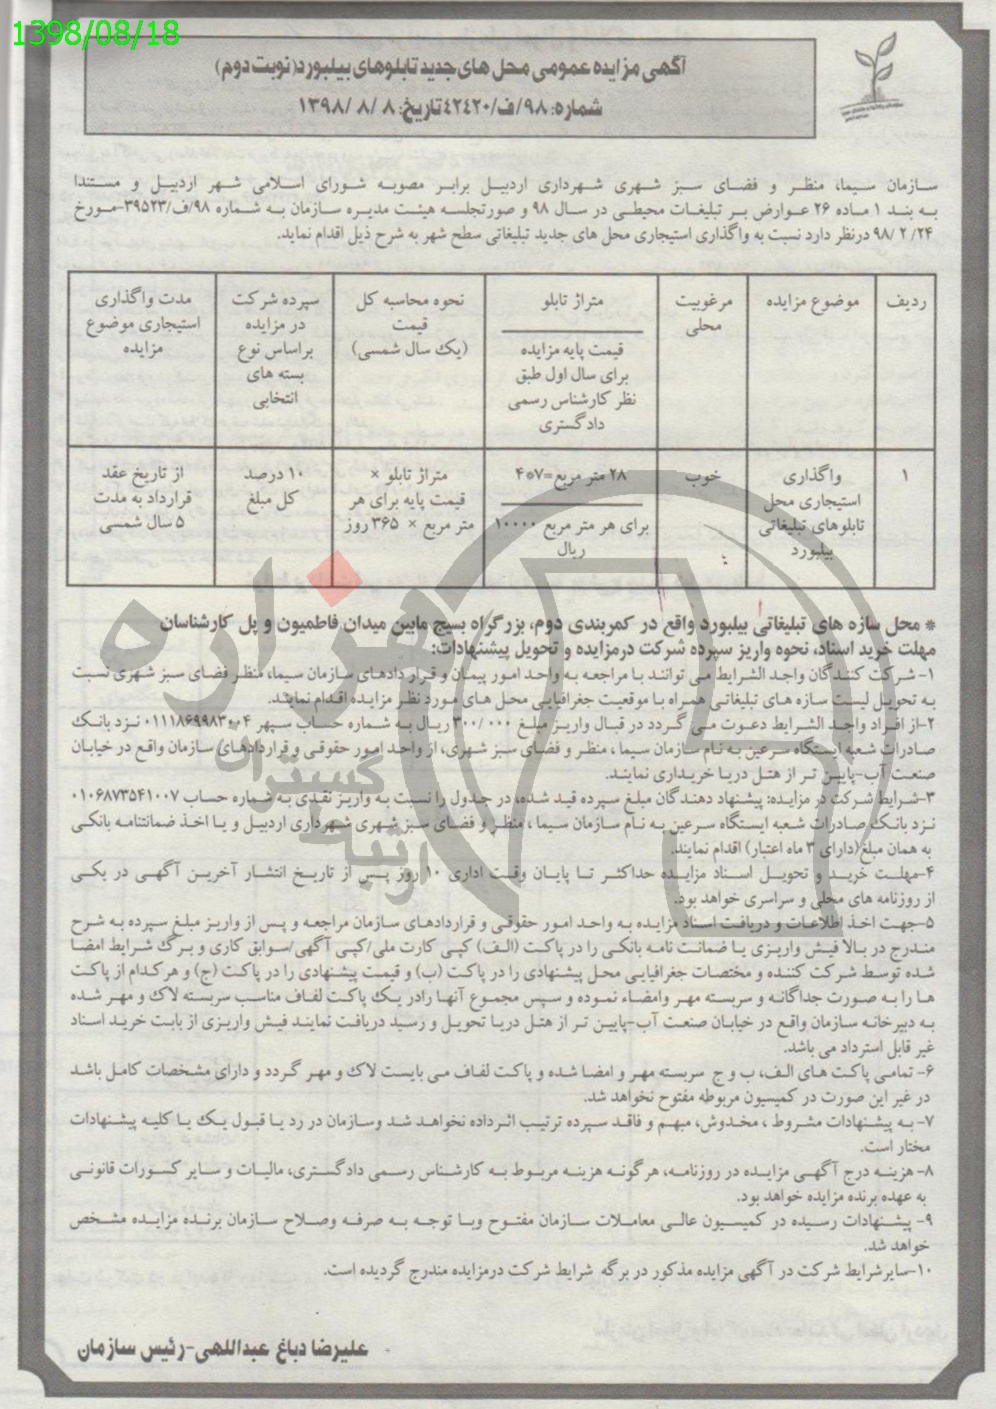 1398/08/18
آگهی مزایده عمومی محل های جدید تابلوهای بیلبورد(نوبت دوم)
شماره: ۹۸/ف/۴۲۴۲۰ تاریخ: ۸ /۸ /۱۳۹۸
سازمان سیما، منظر و فضای سبز شهری شهرداری اردبیل برابر مصوبه شورای اسلامی شهر اردبیل و مستندا
به بند ۱ ماده ۲۶ عوارض بر تبلیغات محیطی در سال ۹۸ و صورتجلسه هیئت مدیره سازمان به شماره ۹۸/ف/۳۹۵۲۳-مورخ
۹۸/ ۲ /۲۴ درنظر دارد نسبت به واگذاری استیجاری محل های جدید تبلیغاتی سطح شهر به شرح ذیل اقدام نماید.
ردیف
موضوع مزایده
مرغوبیت
محلی
متراژ تابلو
قیمت پایه مزایده
برای سال اول طبق
نظر کارشناس رسمی
دادگستری
نحوه محاسبه کل
قیمت
(یک سال شمسی)
سپرده شرکت
در مزایده
براساس نوع
بسته های
انتخابی
مدت واگذاری
استیجاری موضوع
مزایده
۱
واگذاری
استیجاری محل
تابلوهای تبلیغاتی
بیلبورد
خوب
۲۸ متر مربع=۷*۴
برای هر متر مربع ۱۰۰۰۰
ریال
متراژ تابلو ×
قیمت پایه برای هر
متر مربع × ۳۶۵ روز
۱۰ درصد
کل مبلغ
از تاریخ عقد
قرارداد به مدت
۵ سال شمسی
* محل سازه های تبلیغاتی بیلبورد واقع در کمربندی دوم، بزرگراه بسیج مابین میدان فاطمیون و پل کارشناسان
مهلت خرید اسناد، نحوه واریز سپرده شرکت درمزایده و تحویل پیشنهادات:
۱- شرکت کنندگان واجد الشرایط می توانند با مراجعه به واحد امور پیمان و قراردادهای سازمان سیما، منظر فضای سبز شهری نسبت
به تحویل لیست سازه های تبلیغاتی همراه با موقعیت جغرافیایی محل های مورد نظر مزایده اقدام نمایند.
۲-از افراد واجد الشرایط دعوت می گردد در قبال واریز مبلغ ۳۰۰/۰۰۰ ریال به شماره حساب سپهر ۰۱۱۱۸۶۹۹۸۳۰۰۴ نزد بانک
صادرات شعبه ایستگاه سرعین به نام سازمان سیما ، منظر و فضای سبز شهری، از واحد امور حقوقی و قراردادهای سازمان واقع در خیابان
صنعت آب-پایین تر از هتل دریا خریداری نمایند.
۳-شرایط شرکت در مزایده: پیشنهاد دهندگان مبلغ سپرده قید شده، در جدول را نسبت به واریز نقدی به شماره حساب ۰۱۰۶۸۷۳۵۴۱۰۰۷
نزد بانک صادرات شعبه ایستگاه سرعین به نام سازمان سیما ، منظر و فضای سبز شهری شهرداری اردبیل و یا اخذ ضمانتنامه بانکی
به همان مبلغ(دارای ۳ ماه اعتبار) اقدام نمایند.
۴-مهلت خرید و تحویل اسناد مزایده حداکثر تا پایان وقت اداری ۱۰ روز پس از تاریخ انتشار آخرین آگهی در یکی
از روزنامه های محلی و سراسری خواهد بود.
۵-جهت اخذ اطلاعات و دریافت اسناد مزایده به واحد امور حقوقی و قراردادهای سازمان مراجعه و پس از واریز مبلغ سپرده به شرح
مندرج در بالا فیش واریزی یا ضمانت نامه بانکی را در پاکت (الف) کپی کارت ملی/کپی آگهی/سوابق کاری و برگ شرایط امضا
شده توسط شرکت کننده و مختصات جغرافیایی محل پیشنهادی را در پاکت (ب) و قیمت پیشنهادی را در پاکت (ج) و هرکدام از پاکت
ها را به صورت جداگانه و سربسته مهر وامضاء نموده و سپس مجموع آنها رادر یک پاکت لفاف مناسب سربسته لاک و مهر شده
به دبیرخانه سازمان واقع در خیابان صنعت آب-پایین تر از هتل دریا تحویل و رسید دریافت نمایند فیش واریزی از بابت خرید اسناد
غیر قابل استرداد می باشد.
۶- تمامی پاکت های الف، ب و ج سربسته مهر و امضا شده و پاکت لفاف می بایست لاک و مهر گردد و دارای مشخصات کامل باشد
در غیر این صورت در کمیسیون مربوطه مفتوح نخواهد شد.
۷- به پیشنهادات مشروط ، مخدوش، مبهم و فاقد سپرده ترتیب اثرداده نخواهد شد وسازمان در رد یا قبول یک یا کلیه پیشنهادات
مختار است.
۸- هزینه درج آگهی مزایده در روزنامه، هرگونه هزینه مربوط به کارشناس رسمی دادگستری، مالیات و سایر کسورات قانونی
به عهده برنده مزایده خواهد بود.
۹- پیشنهادات رسیده در کمیسیون عالی معاملات سازمان مفتوح وبا توجه به صرفه وصلاح سازمان برنده مزایده مشخص
خواهد شد.
۱۰-سایرشرایط شرکت در آگهی مزایده مذکور در برگه شرایط شرکت درمزایده مندرج گردیده است.
علیرضا دباغ عبداللهی-رئیس سازمان